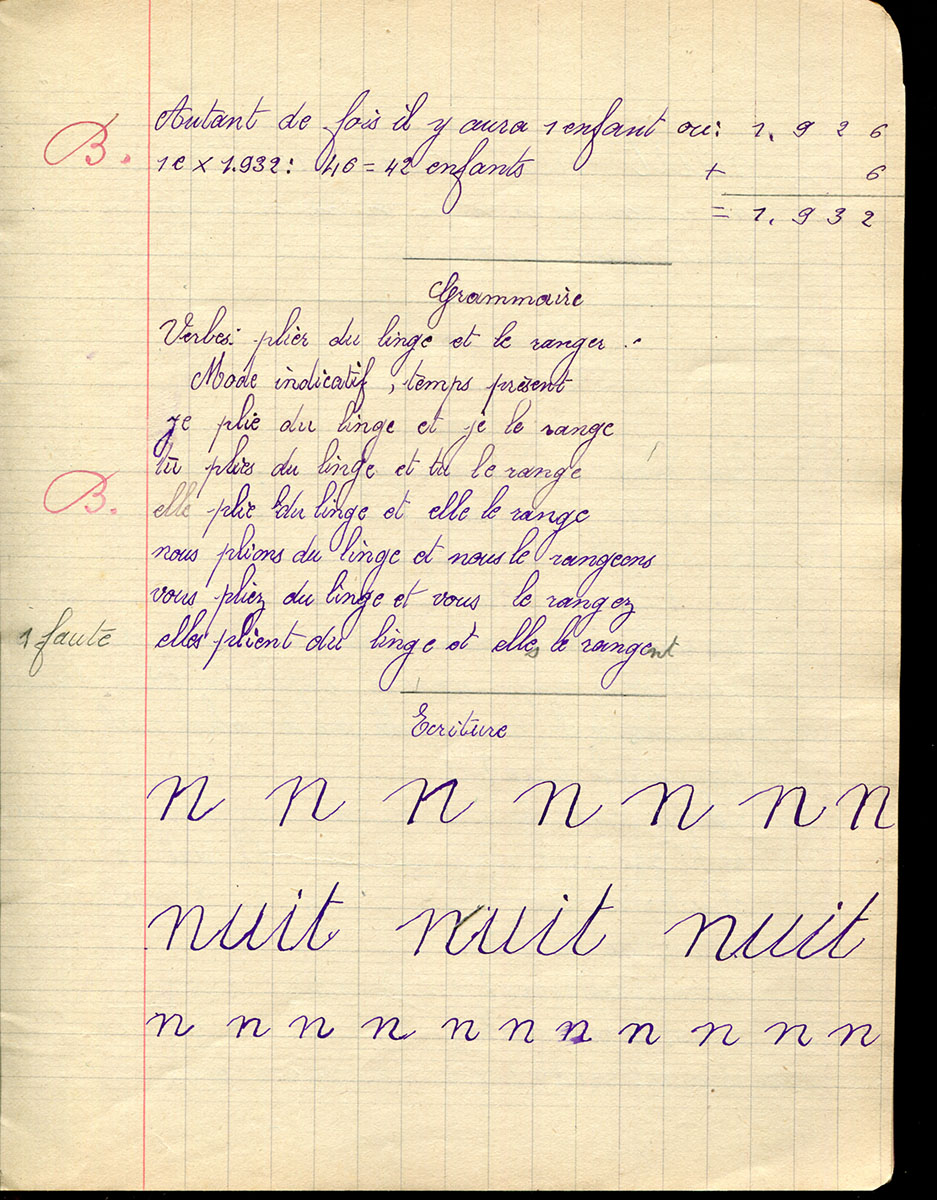 B.
Autant de fois il y aura 1 enfant ou: 1. 9 2 6
1e x 1.932: 46 = 42 enfants + 6
= 1. 9 3 2
Grammaire
Verbes: plier du linge et le ranger.
Mode indicatif, temps présent
je plie du linge et je le range
tu plies du linge et tu le range
B.
elle plie du linge et elle le range
nous plions du linge et nous le rangeons
vous pliez du linge et vous le rangez
1 faute
elles plient du linge et elles le rangent
Ecriture
n n n n n n n
nuit nuit nuit
n n n n n n n n n n n